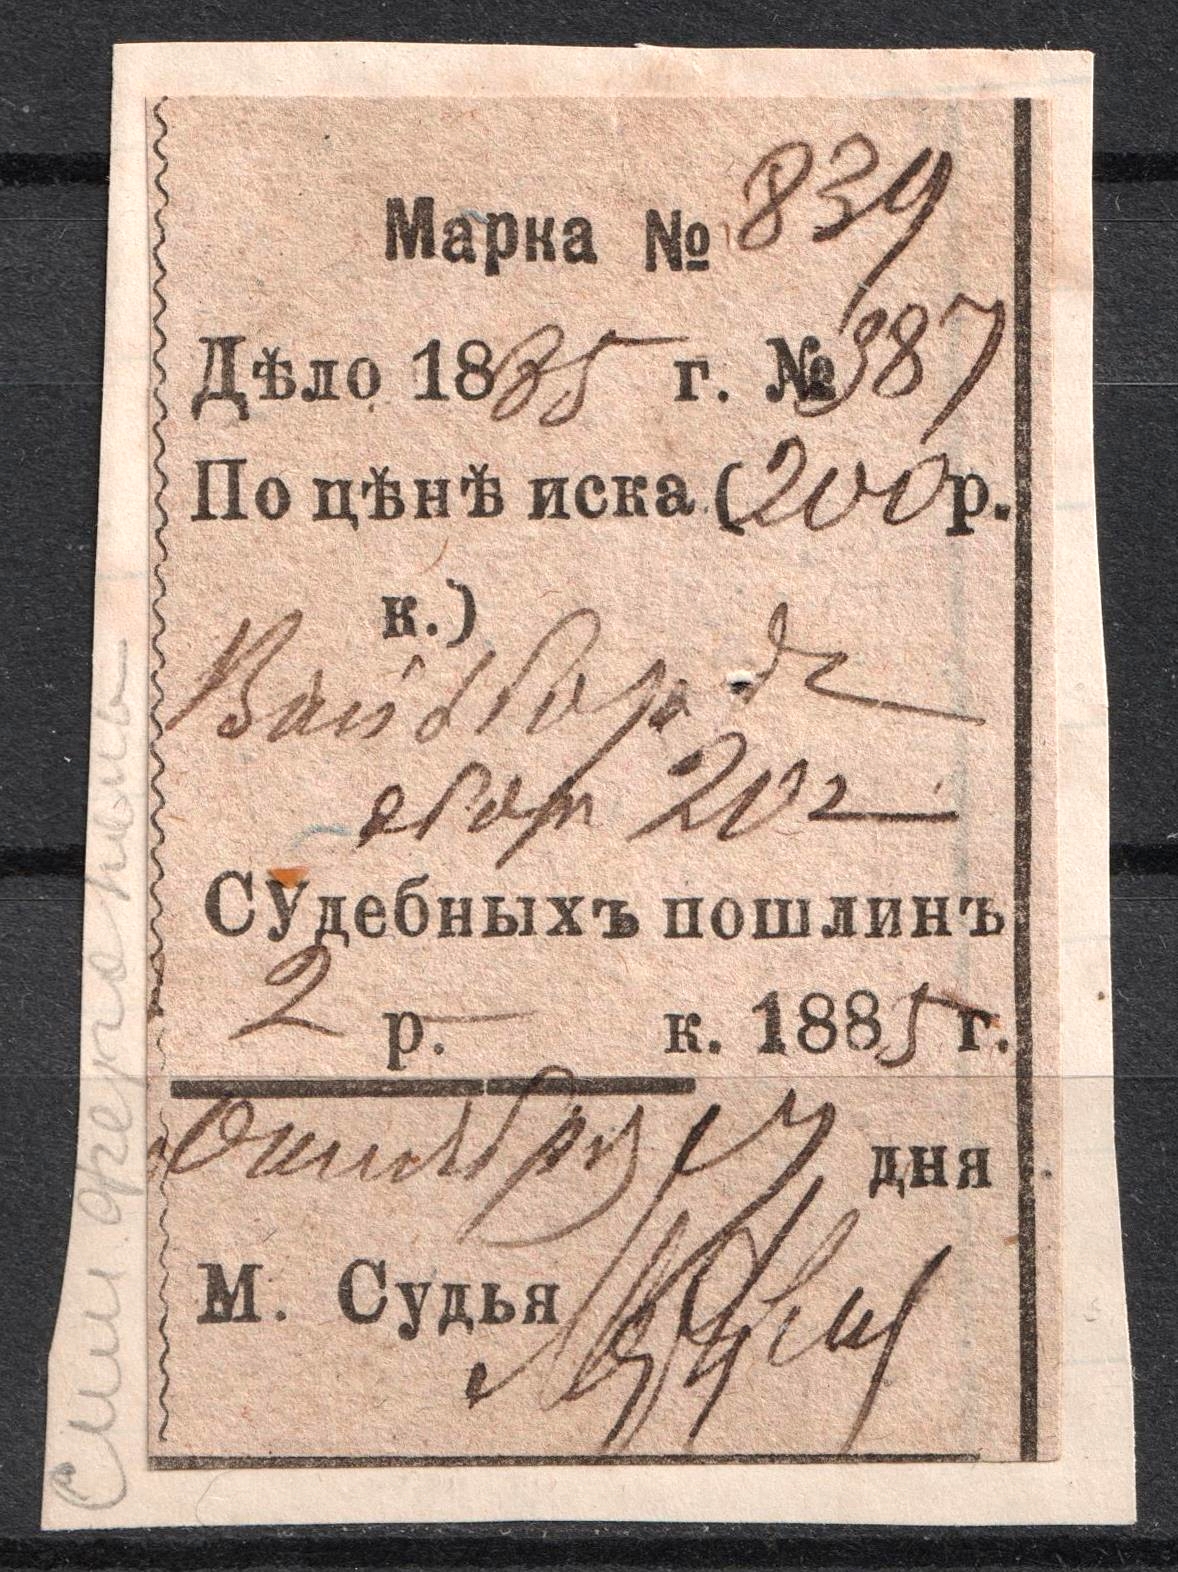 Марка № 839
Дѣло 1885 г. № 387
По цѣнѣ иска (200 р.
к.)
Судебныхъ пошлинъ
2 р. — к. 1885 г.
Октября 17 дня
М. Судья
Симферополь